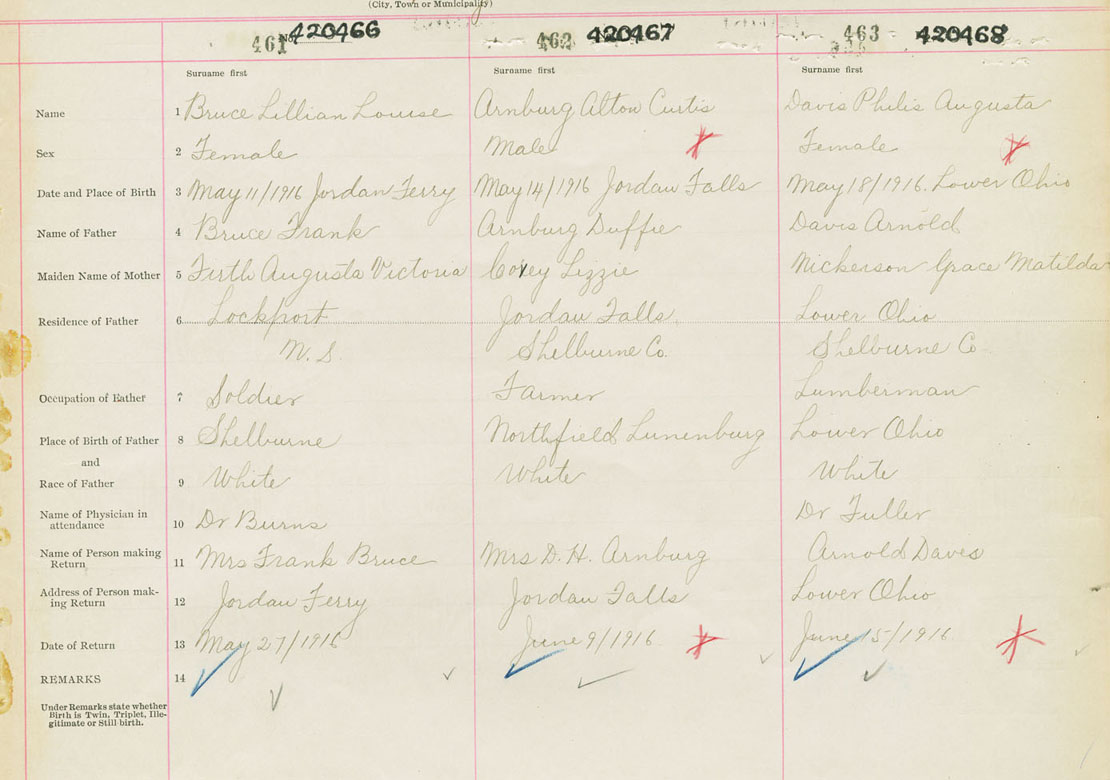 (City, Town or Municipality)
461 No. 420466 462 420467 463 420468
Surname first Surname first Surname first
Name 1 Bruce Lillian Louise Arnburg Alton Curtis Davis Philis Augusta
Sex 2 Female Male Female
Date and Place of Birth 3 May 11/1916 Jordan Ferry May 14/1916 Jordan Falls May 18/1916. Lower Ohio
Name of Father 4 Bruce Frank Arnburg Duffie Davis Arnold
Maiden Name of Mother 5 Firth Augusta Victoria Covey Lizzie Nickerson Grace Matilda
Residence of Father 6 Lockport Jordan Falls. Lower Ohio
N. S. Shelburne Co. Shelburne Co
Occupation of Father 7 Soldier Farmer Lumberman
Place of Birth of Father 8 Shelburne Northfield Lunenburg Lower Ohio
and
Race of Father 9 White White White
Name of Physician in
attendance 10 Dr Burns Dr Fuller
Name of Person making
Return 11 Mrs Frank Bruce Mrs D. H. Arnburg Arnold Daves
Address of Person mak-
ing Return 12 Jordan Ferry Jordan Falls Lower Ohio
Date of Return 13 May 27/1916 June 9/1916. June 15/1916.
REMARKS 14
Under Remarks state whether
Birth is Twin, Triplet, Ille-
gitimate or Still birth.